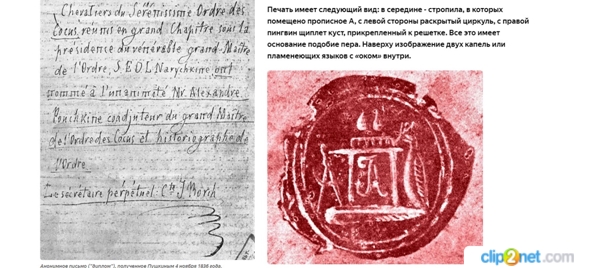 Chevaliers du Sérénissime Ordre des
Cocus, réunis en grand Chapitre sous la
présidence du vénérable grand-Maître
de l'Ordre, S.E. D.L. Narychkine, ont
nommé à l'unanimité Mr. Alexandre
Pouchkine coadjuteur du grand Maître
de l'Ordre des Cocus et historiographe de
l'Ordre.
Le secrétaire perpétuel: Cte J. Borch
Анонимное письмо ("диплом"), полученное Пушкиным 4 ноября 1836 года.
Печать имеет следующий вид: в середине - стропила, в которых
помещено прописное А, с левой стороны раскрытый циркуль, с правой
пингвин щиплет куст, прикрепленный к решетке. Все это имеет
основание подобие пера. Наверху изображение двух капель или
пламенеющих языков с «оком» внутри.
A
clip2net.com